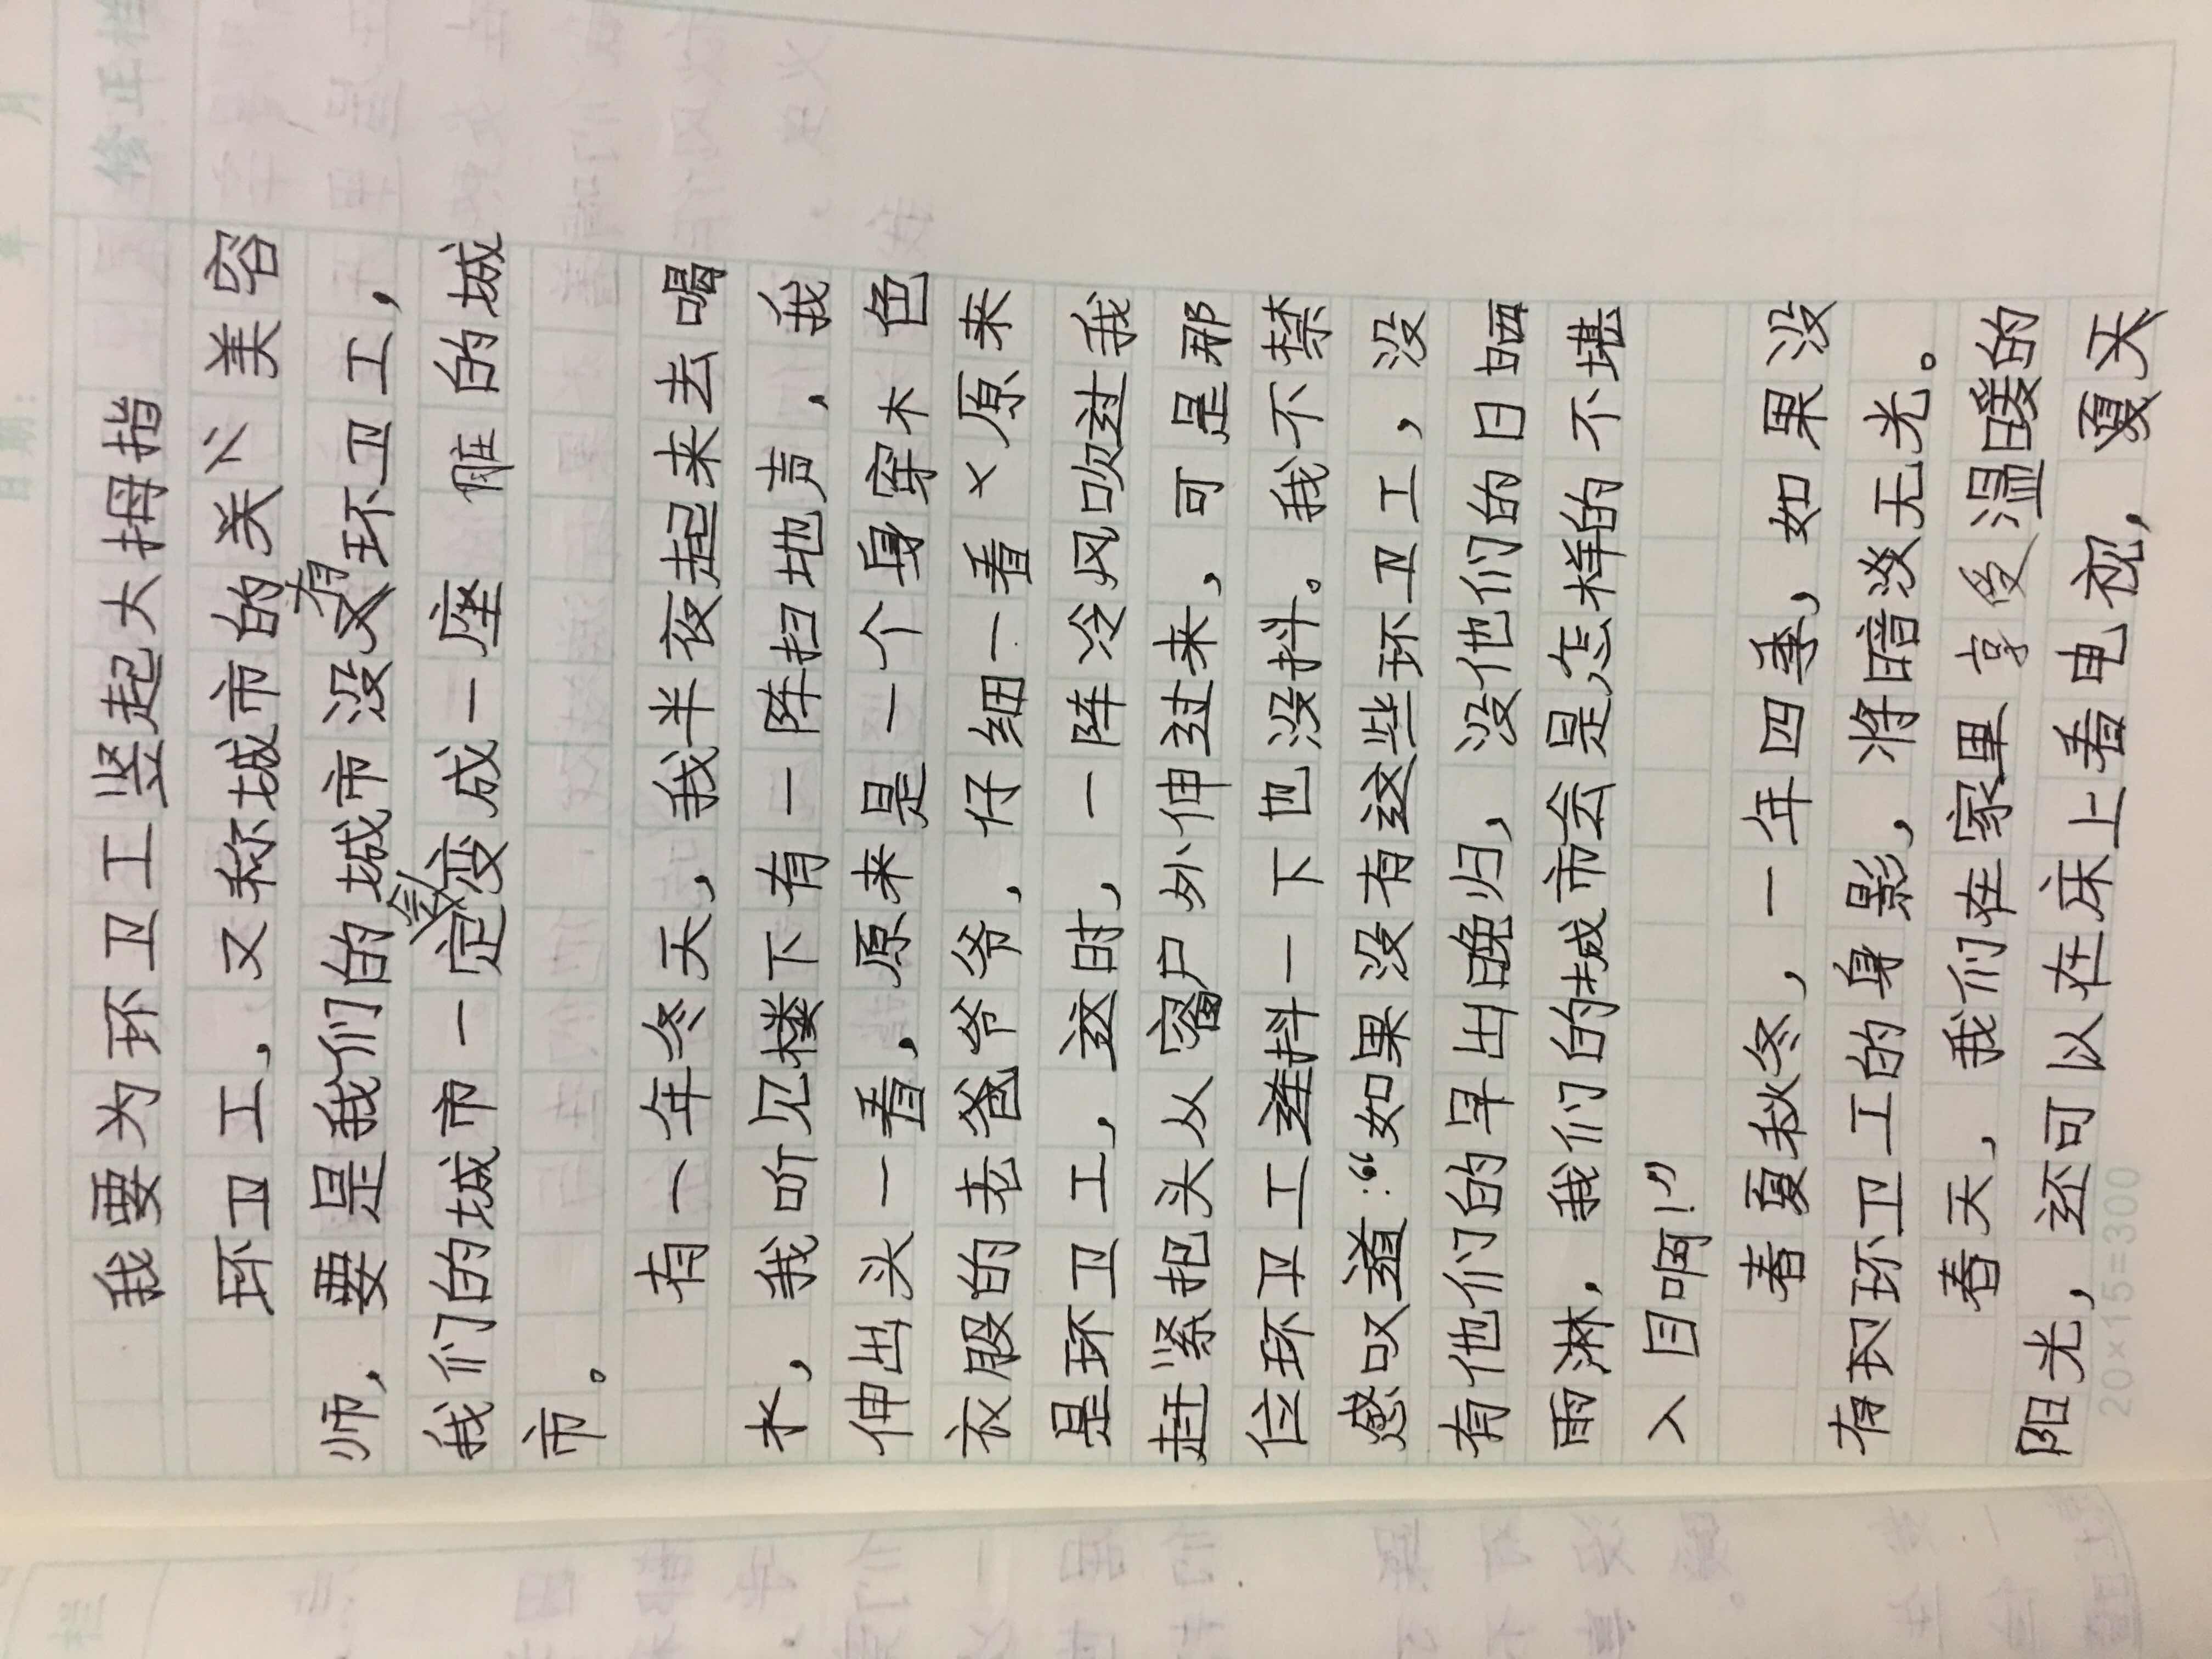 日期： 年 月
修正栏
我要为环卫工竖起大拇指
环卫工，又称城市的美容
师，要是我们的城市没有环卫工，
我们的城市一定会变成一座脏的城
市。
有一年冬天，我半夜起来去喝
水，我听见楼下有一阵扫地声，我
伸出头一看，原来是一个身穿木色
衣服的老爸爷爷，仔细一看×原来
是环卫工，这时，一阵冷风吹过我
赶紧把头从窗户外伸过来，可是那
位环卫工连抖一下也没抖。我不禁
感叹道：“如果没有这些环卫工，没
有他们的早出晚归，没他们的日晒
雨淋，我们的城市会是怎样的不堪
入目啊！”
春夏秋冬，一年四季，如果没
有环卫工的身影，将暗淡无光。
春天，我们在家里享受温暖的
阳光，还可以在床上看电视，夏天
20×15=300